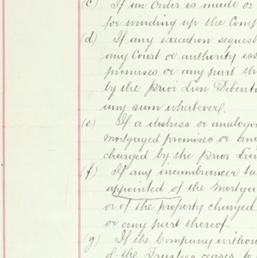 (c) If an Order is made or
for winding up the Comp
(d) If any execution seques
any Court or authority iss
premises or any part th
by the Prior Lien Debent
any sum whatever.
(e) If a distress or analogo
mortgaged premises or an
charged by the Prior Lien
(f) If any incumbrancer ta
appointed of the Mortga
or of the property charged
or any part thereof
(g) If the Company witho
of the Trustees ceases to